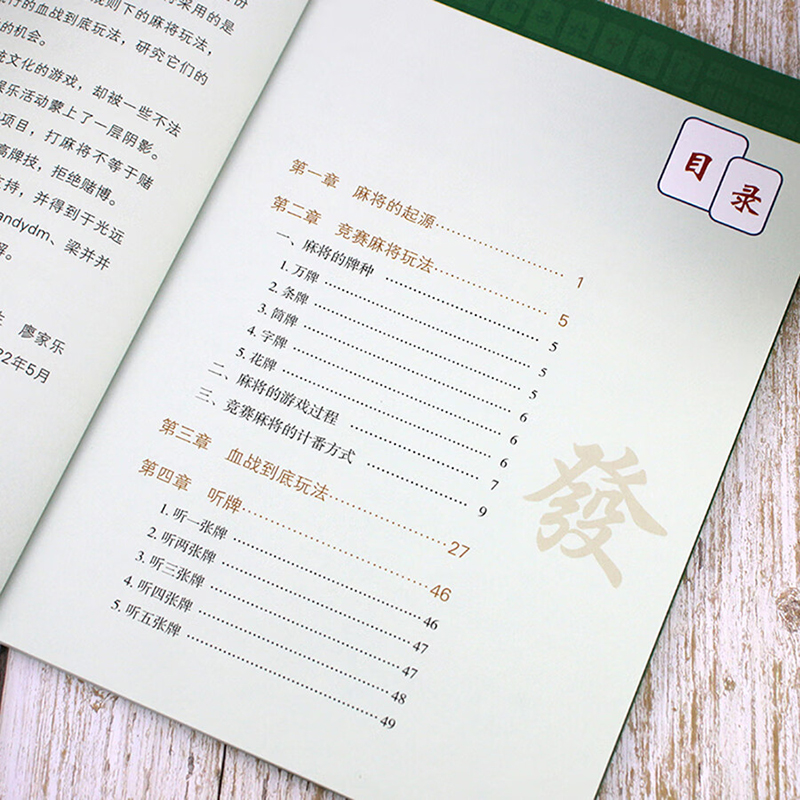 采用的是
行的血战到底玩法，
则下的麻将玩法，
的机会。
研究它们的
文化的游戏，却被一些不法
娱乐活动蒙上了一层阴影。
项目，打麻将不等于赌
高牌技，拒绝赌博。
支持，并得到于光远
andydm、梁并并
廖家乐
22年5月
目录
第一章 麻将的起源 1
第二章 竞赛麻将玩法 5
一、麻将的牌种 5
1. 万牌 5
2. 条牌 5
3. 筒牌 6
4. 字牌 6
5. 花牌 6
二、麻将的游戏过程 7
三、竞赛麻将的计番方式 9
第三章 血战到底玩法 27
第四章 听牌 46
1. 听一张牌 46
2. 听两张牌 47
3. 听三张牌 47
4. 听四张牌 48
5. 听五张牌 49
發